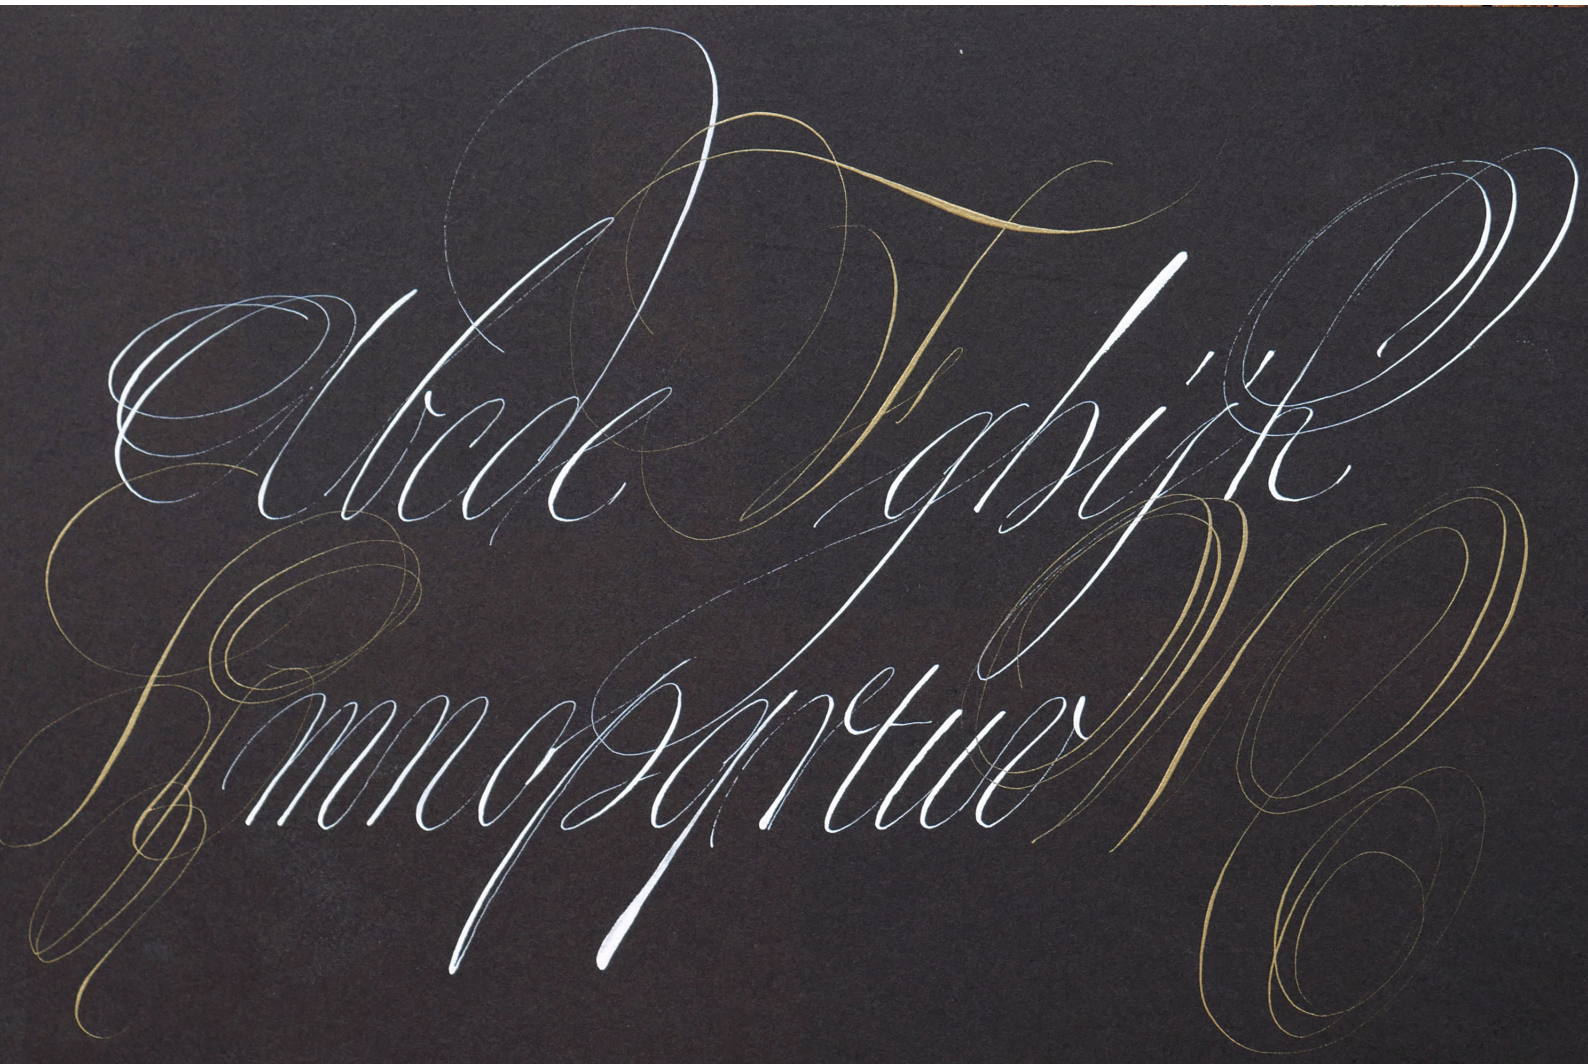 Abcde F ghijk
L mnopqrstuv